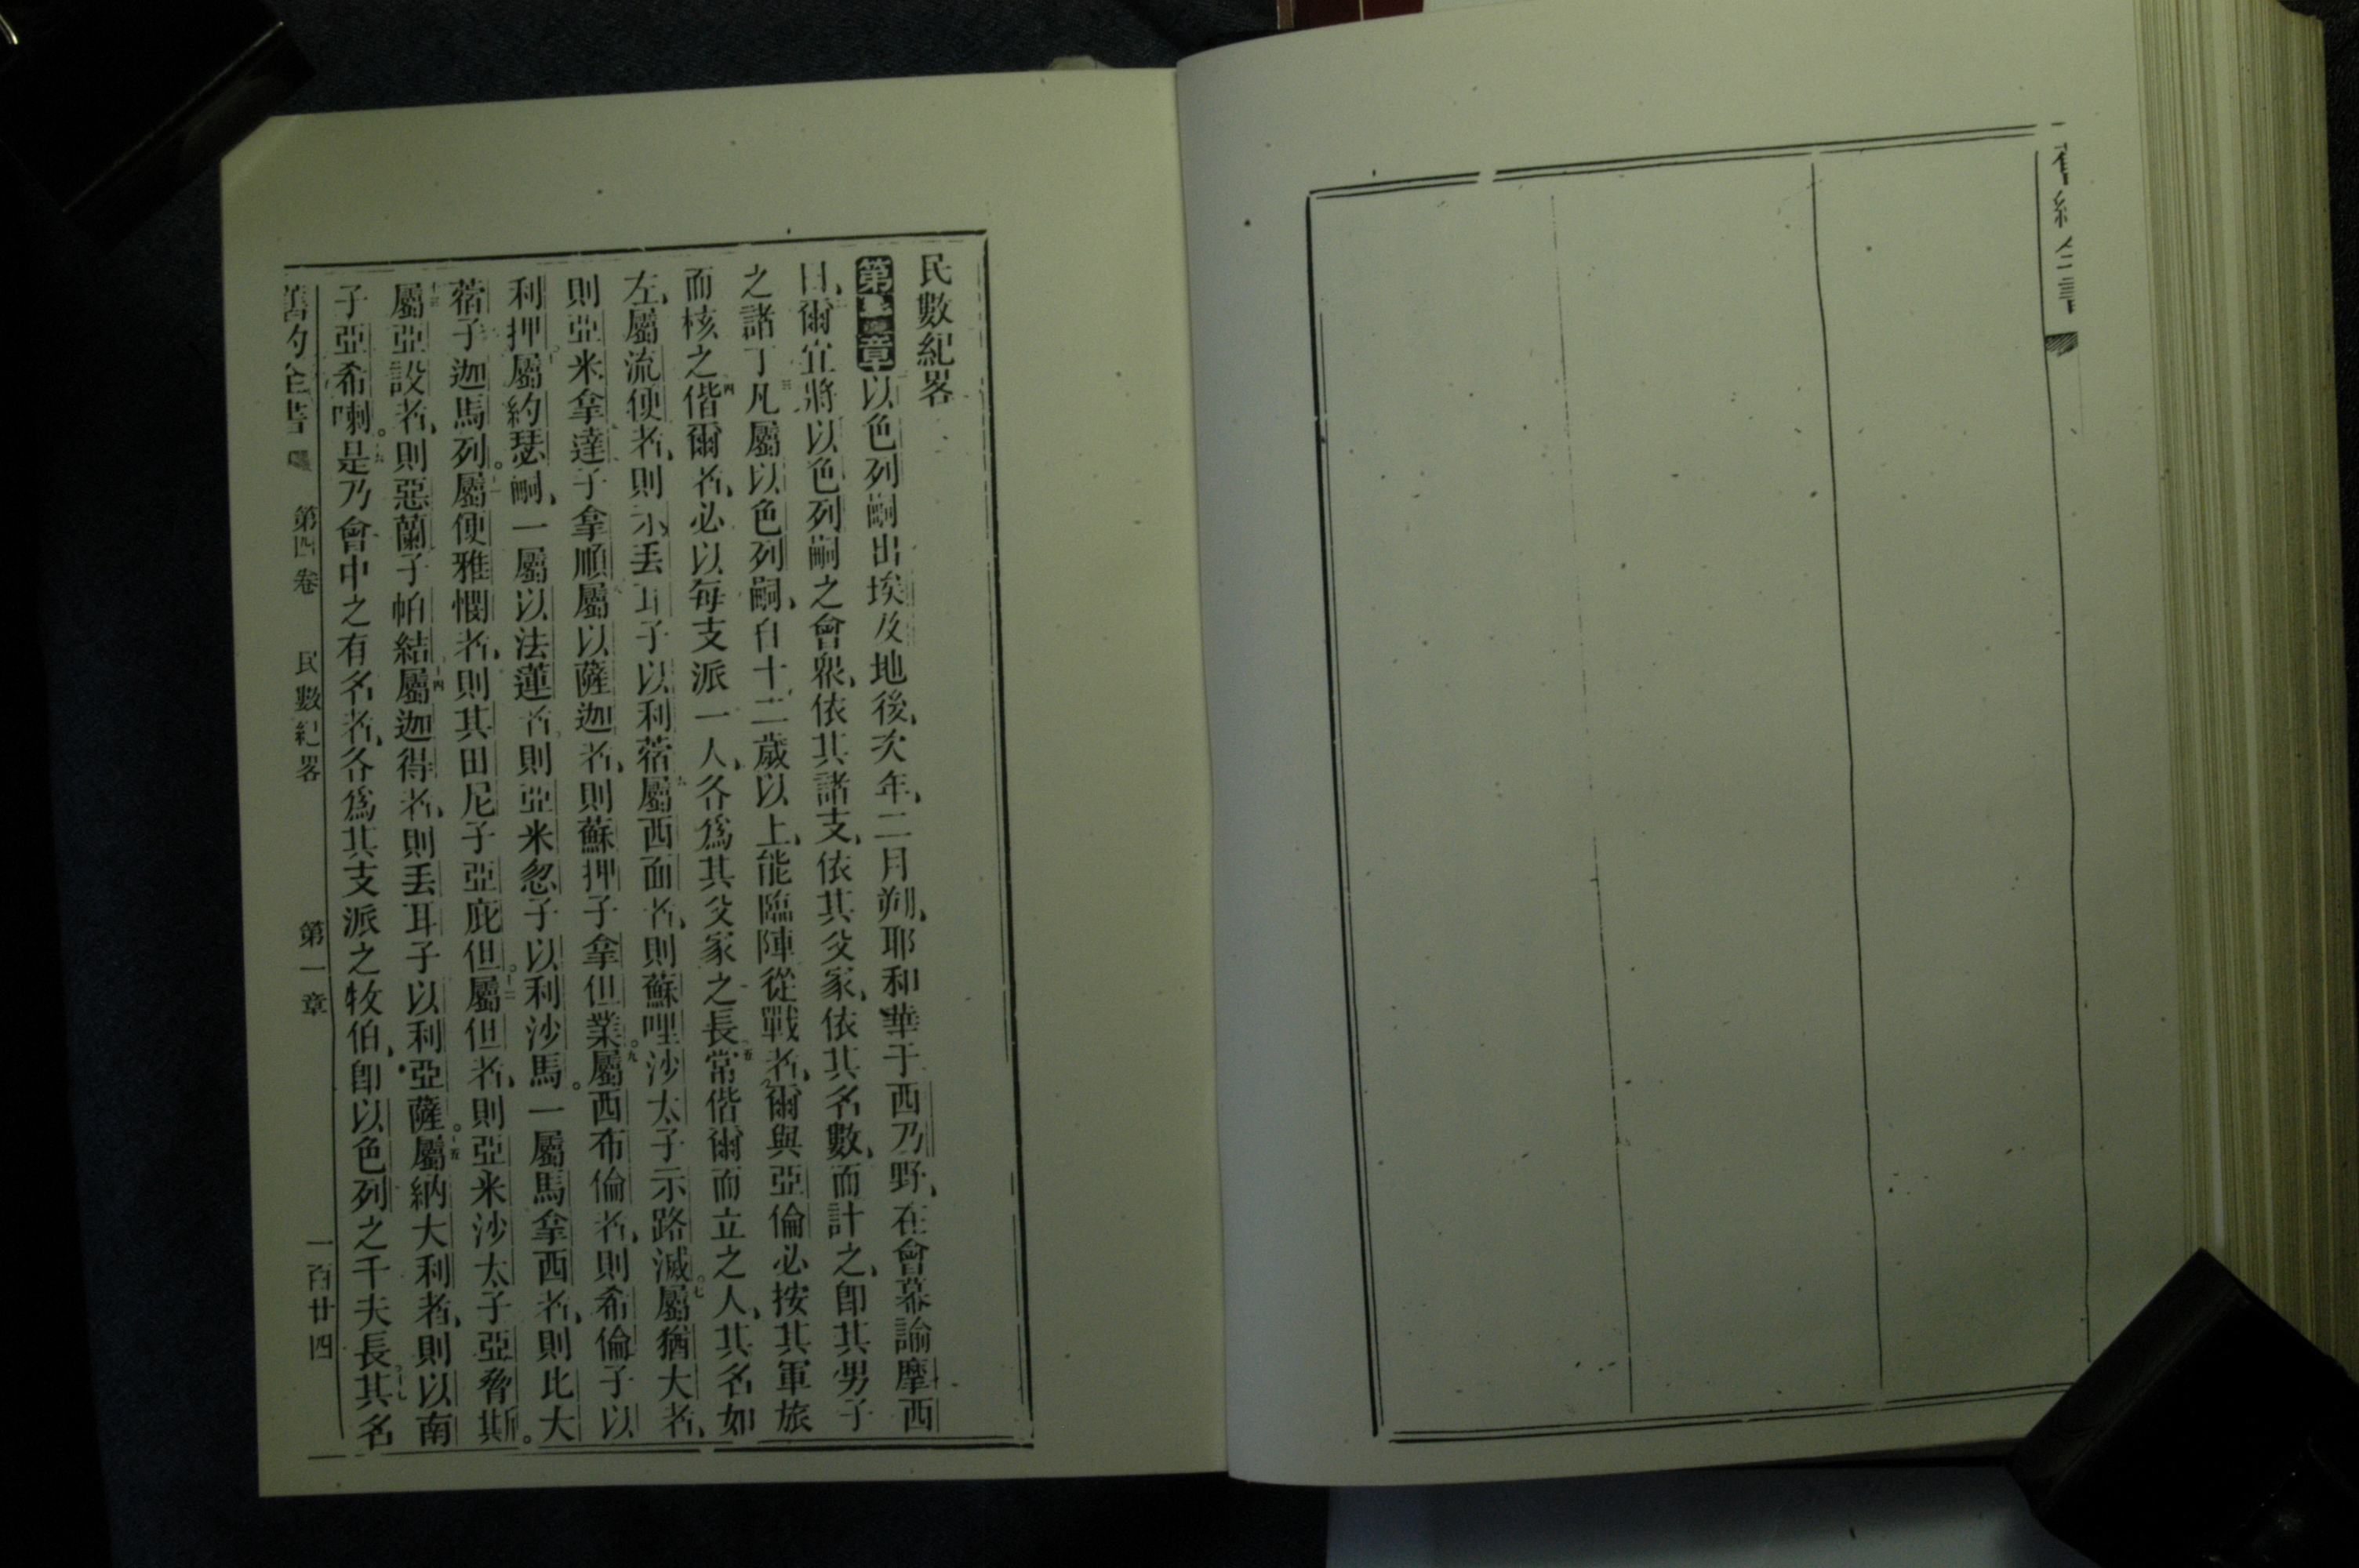 舊約全書
民數紀畧
第壹章以色列嗣出埃及地後、次年、二月朔、耶和華于西乃野、在會幕諭摩西
曰、爾宜將以色列嗣之會衆、依其諸支、依其父家、依其名數、而計之、卽其男子
之諸丁三凡屬以色列嗣、自十二歲以上、能臨陣從戰者、爾與亞倫必按其軍旅
而核之四偕爾者、必以每支派一人、各爲其父家之長五常偕爾而立之人、其名如
左、屬流便者、則示丟耳子以利蓿六屬西面者、則蘇哩沙太子示路滅。七屬猶大者、
則亞米拿達子拿順八屬以薩迦者、則蘇押子拿但業。九屬西布倫者、則希倫子以
利押。十屬約瑟嗣、一屬以法蓮者、則亞米忽子以利沙馬。一屬馬拿西者、則比大
蓿子迦馬列。十一屬便雅憫者、則其田尼子亞庇但。十二屬但者、則亞米沙太子亞脅斯。
十三屬亞設者、則惡蘭子帕結十四屬迦得者、則丟耳子以利亞薩。十五屬納大利者、則以南
子亞希喇。十六是乃會中之有名者、各爲其支派之牧伯、卽以色列之千夫長。十七其名
舊約全書 第四卷 民數紀畧 第一章 一百廿四